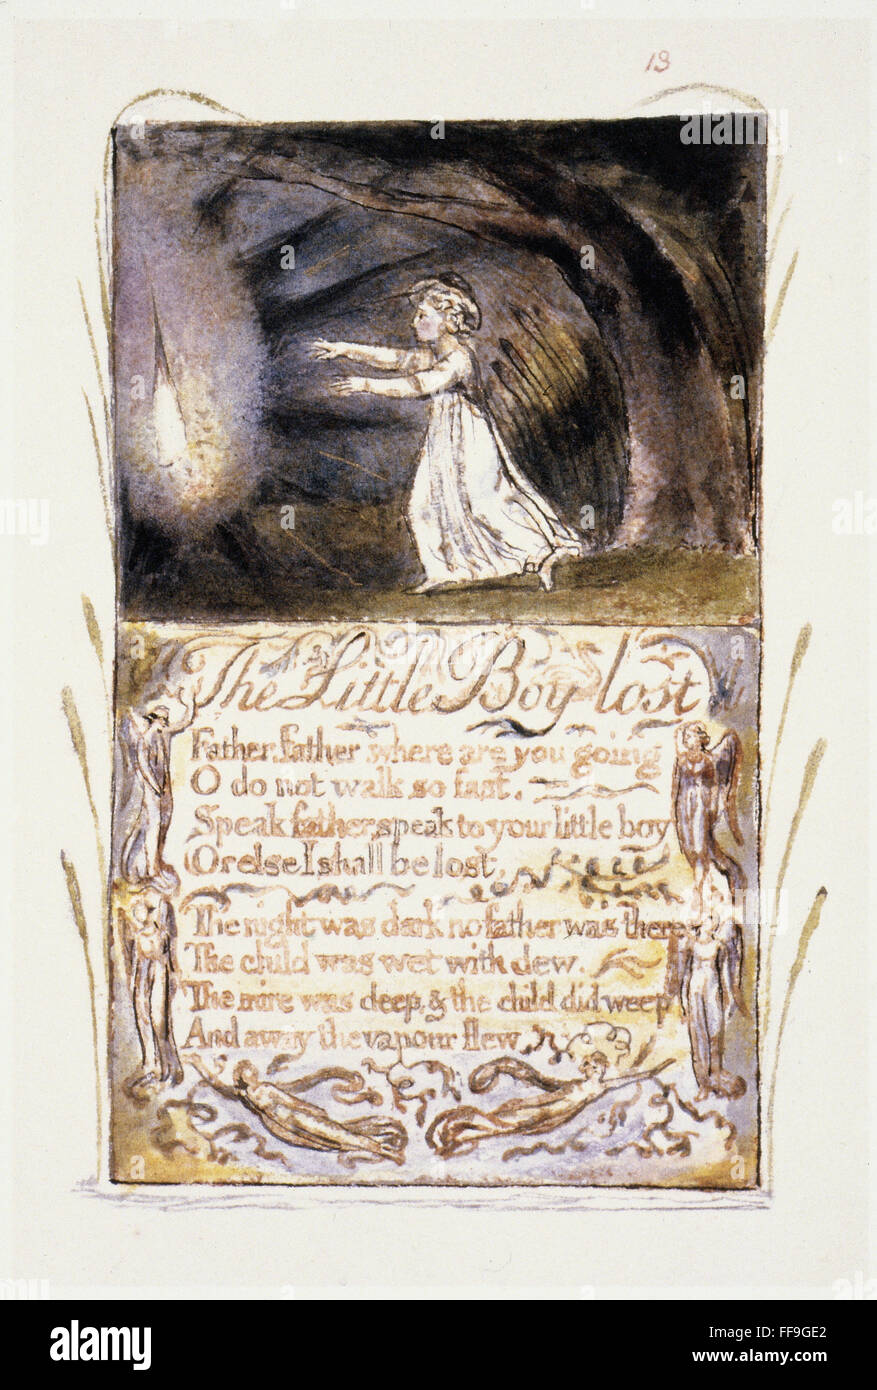 13
The Little Boy lost
Father, father, where are you going
O do not walk so fast.
Speak father, speak to your little boy
Or else I shall be lost,
The night was dark no father was there
The child was wet with dew.
The mire was deep, & the child did weep
And away the vapour flew.
alamy
Image ID: FF9GE2
www.alamy.com